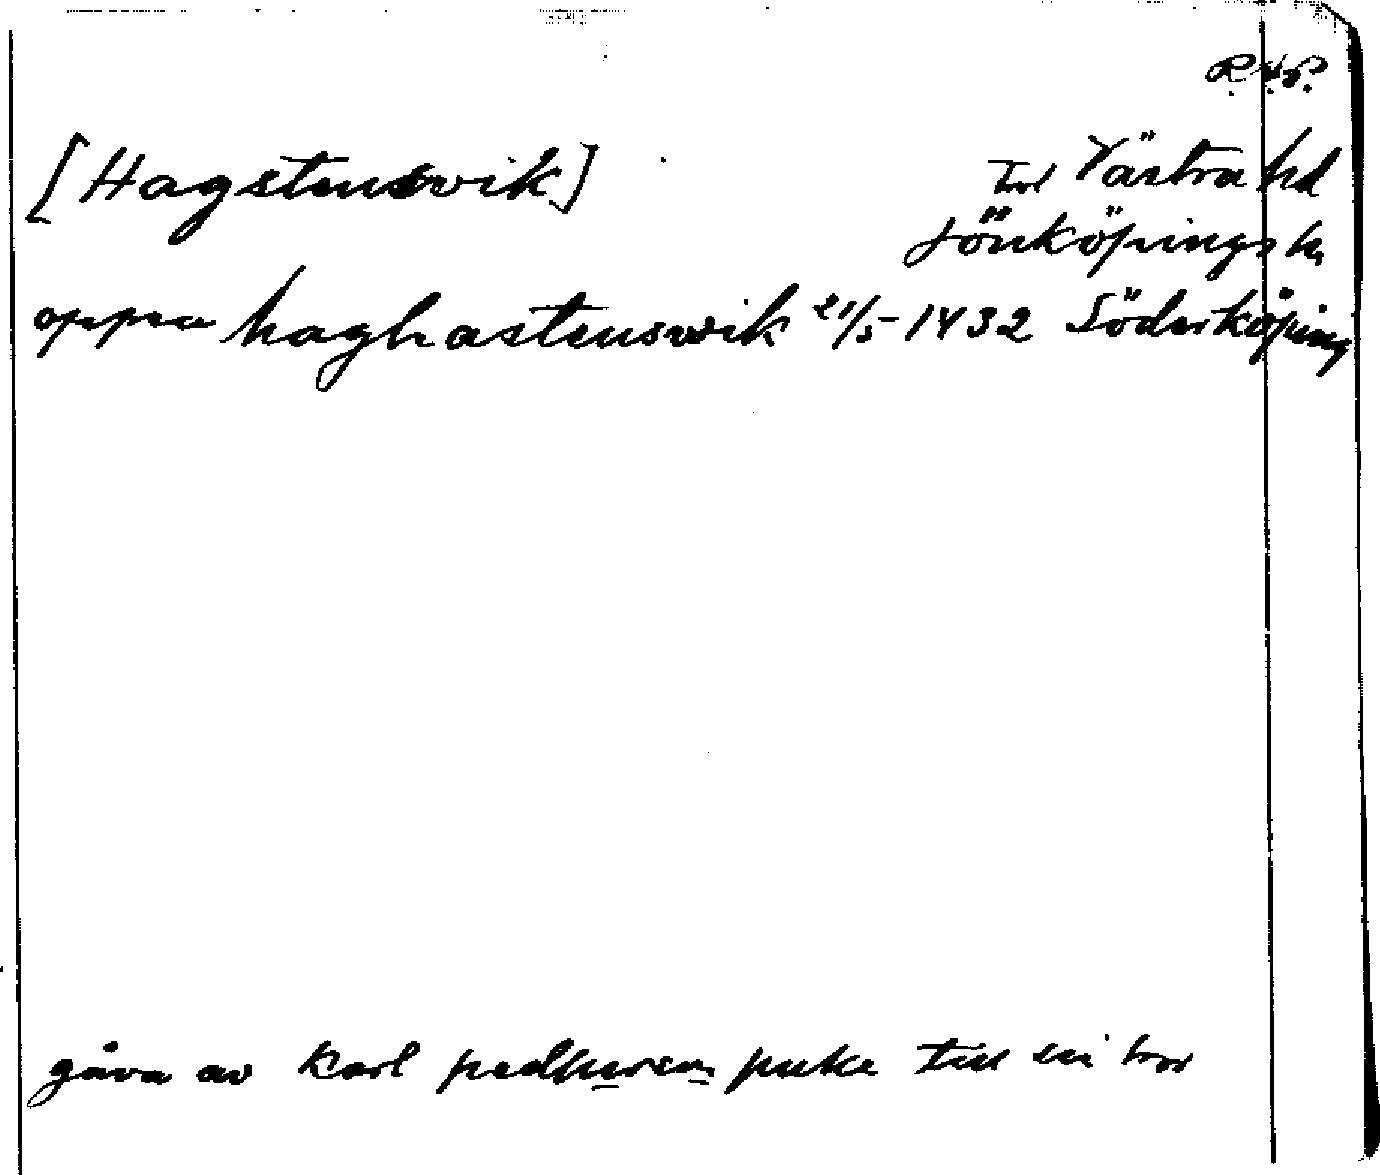 R.A.P.
[Hagstensvik] Tvl Västra hd
Jönköpings l.
oppra haghastenswik 21/5-1432 Söderköping
gåva av karl pedhersen puke till sin bror